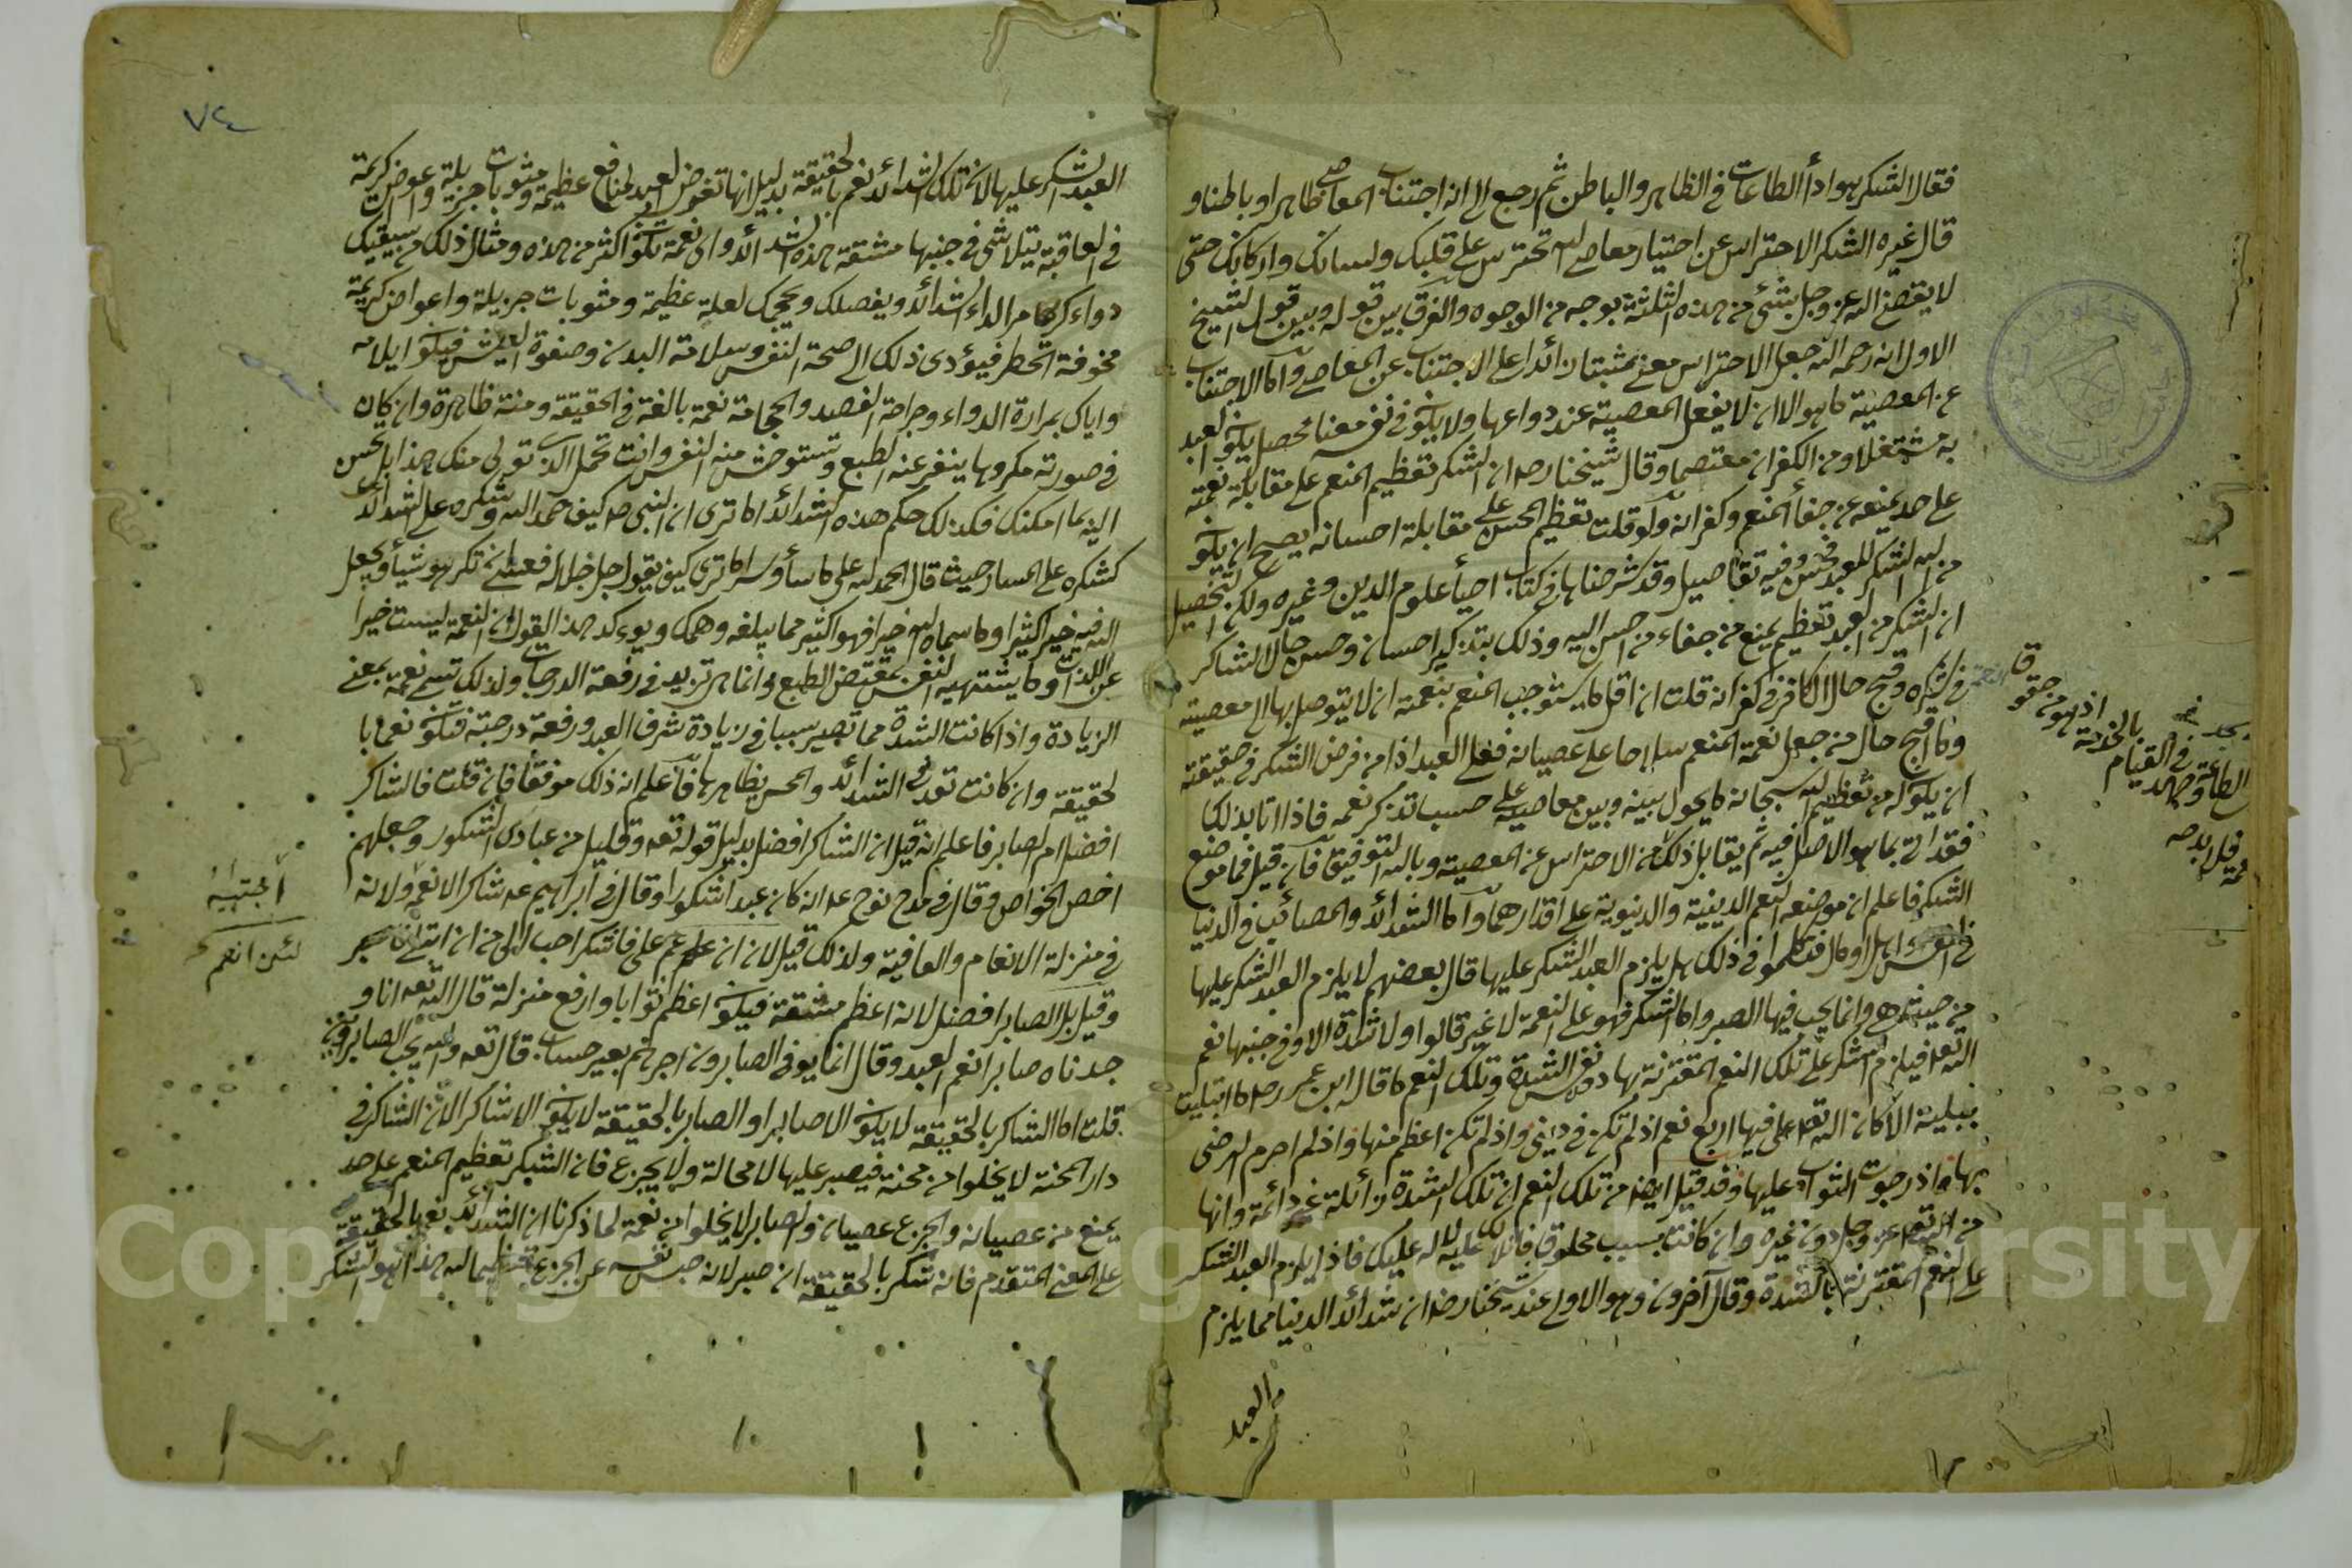 فقال الشكر هو اداأ الطاعات في الظاهر والباطن ثم رجع الى انه اجتناب المعاصي ظاهرا وباطنا و
قال غيره الشكر الاحتراس عن اختيار معاصي الله تحترس على قلبك ولسانك واركانك حتى
لا يعصى الله عز وجل بشئ من هذه الثلثة بوجه من الوجوه والفرق بين قوله وبين قول الشيخ
الاول انه رحمه الله جعل الاحتراس معنى مثبتا زائدا على الاجتناب عن المعاصي واما الاجتناب
عن المعصية ما هو الا ان لا يفعل المعصية عند دواعيها ولا يكون في نفسه معنا محصل يكون العبد
به مشتغلا ومن الكفران معتصما وقال شيخنا رحه ان الشكر تعظيم المنعم على مقابلة نعمته
على حد يمنعه عن جفأ المنعم وكفرانه ولو قلت تعظيم المحسن على مقابلة احسانه يصح ان يكون
من الله الشكر للعبد فحسن وفيه تفاصيل وقد شرحناها في كتاب احيأ علوم الدين وغيره ولكن التحصيل
ان الشكر من العبد تعظيم يمنع من جفاء من احسن اليه وذلك بتذكير احسانه وحسن حال الشاكر
في شكره وقبح حال الكافر في كفرانه قلت ان اقل ما يستوجب المنعم بنعمته ان لا يتوصل بها الى معصيته
وما اقبح حال من جعل نعمة المنعم سلاحا على عصيانه فعلى العبد اذا من فرض الشكر في حقيقته
ان يكون له من تعظيم الله سبحانه ما يحول بينه وبين معاصيه على حسب تذكر نعمه فاذا اتا بذلك
فقد اتى بما هو الاصل فيه ثم يقابل ذلك من الاحتراس عن المعصية وبالله التوفيق فان قيل فما موضع
الشكر فاعلم ان موضعه النعم الدينية والدنيوية على اقدارهما واما الشدائد والمصائب في الدنيا
في نفس او اهل او مال فتكلموا في ذلك هل يلزم العبد الشكر عليها قال بعضهم لا يلزم العبد الشكر عليها
من حيث هي وانما يجب فيها الصبر واما الشكر فهو على النعمة لا غير قالوا ولا شدة الا وفي جنبها نعم
الله تعه فيلزم الشكر على تلك النعم المقترنة بها دون نفس الشدة وتلك النعم ما قال ابن عمر رحه ما ابتليت
ببلية الا كان لله تعه على فيها اربع نعم اذ لم تكن في ديني واذ لم تكن اعظم منها واذ لم احرم الرضى
بها واذ رجوت الثواب عليها وقد قيل ايضا من تلك النعم ان تلك الشدة زائلة غير دائمة وانها
من الله تعه عز وجل دون غيره وان كانت بسبب مخلوق فانها لك عليه لا له عليك فاذا يلزم العبد الشكر
على النعم المقترنة بالشدة وقال آخرون وهو الاولى عند شيخنا رحه ان شدائد الدنيا مما يلزم
العبد
اذ هو من حقوقها
بالخدمة
في القيام
الطاعة وجهد
فلا بد من
٧٤
العبد الشكر عليها لان تلك الشدائد نعم بالحقيقة بدليل انها تعوض العبد لمنافع عظيمة ومثوبات جزيلة واعواض كريمة
في العاقبة يتلاشى في جنبها مشقة هذه الشدائد واى نعمة تكون اكثر من هذه ومثال ذلك من يسقيك
دواء كريها مرا لداء الشدائد ويفصدك ويحجمك لعلة عظيمة ومثوبات جزيلة واعواض كريمة
مخوفة الخطر فيؤدى ذلك الى صحة النفس وسلامة البدن وصفوة العيش فيكون ايلامه
واياك بمرارة الدواء وجراحة الفصد والحجامة نعمة بالغة في الحقيقة ومنة ظاهرة وان كان
في صورته مكروها ينفر عنه الطبع وتستوحش منه النفس وانت تحمل الذى تولى منك هذا بل تحسن
اليه بما امكنك فكذلك حكم هذه الشدائد اما ترى ان النبى صه كيف حمد الله وشكره على الشدائد
كشكره على المسار حيث قال الحمد لله على ما سأ وسر اما ترى كيف يقول جل جلاله فعسى ان تكرهوا شيأ ويجعل
الله فيه خيرا كثيرا وما سماه الله خيرا فهو اكثر مما يبلغه وهمك ويوكد هذا القول ان النعمة ليست خيرا
عن اللذات وما يشتهيه النفس بمقتضى الطبع وانما هى تزيد في رفعة الدرجات ولذلك تسمى نعمة بمعنى
الزيادة واذا كانت الشدة مما تصير سببا في زيادة شرف العبد ورفعة درجته فتكون نعما با
لحقيقة وان كانت تعد في الشدائد والمحن بظاهرها فاعلم انه ذلك موفقا فان قلت فالشاكر
افضل ام الصابر فاعلم انه قيل ان الشاكر افضل بدليل قوله تعه وقليل من عبادى الشكور وجعلهم
اخص الخواص وقال في مدح نوح عه انه كان عبدا شكورا وقال في ابراهيم عه شاكرا لانعمه ولانه
في منزلة الانعام والعافية ولذلك قيل لان انعم على فاشكر احب الى من ان ابتلى فاصبر
وقيل بل الصابر افضل لانه اعظم مشقة فيكون اعظم ثوابا وارفع منزلة قال الله تعه انا و
جدناه صابرا نعم العبد وقال انما يوفى الصابرون اجرهم بغير حساب قال تعه والله يحب الصابرين
قلت اما الشاكر بالحقيقة لا يكون الا صابرا والصابر بالحقيقة لا يكون الا شاكرا لان الشاكر في
دار المحنة لا يخلوا من محنة فيصبر عليها لا محالة ولا يجزع فان الشكر تعظيم المنعم على حد
يمنع من عصيانه والجزع عصيان والصابر لا يخلوا من نعمة لما ذكرنا ان الشدائد نعم بالحقيقة
على المعنى المتقدم فانه شكر بالحقيقة ان صبر لانه حبس نفسه عن الجزع تعظيما لله هذا هو الشكر
اجتبيه
لئن انعم